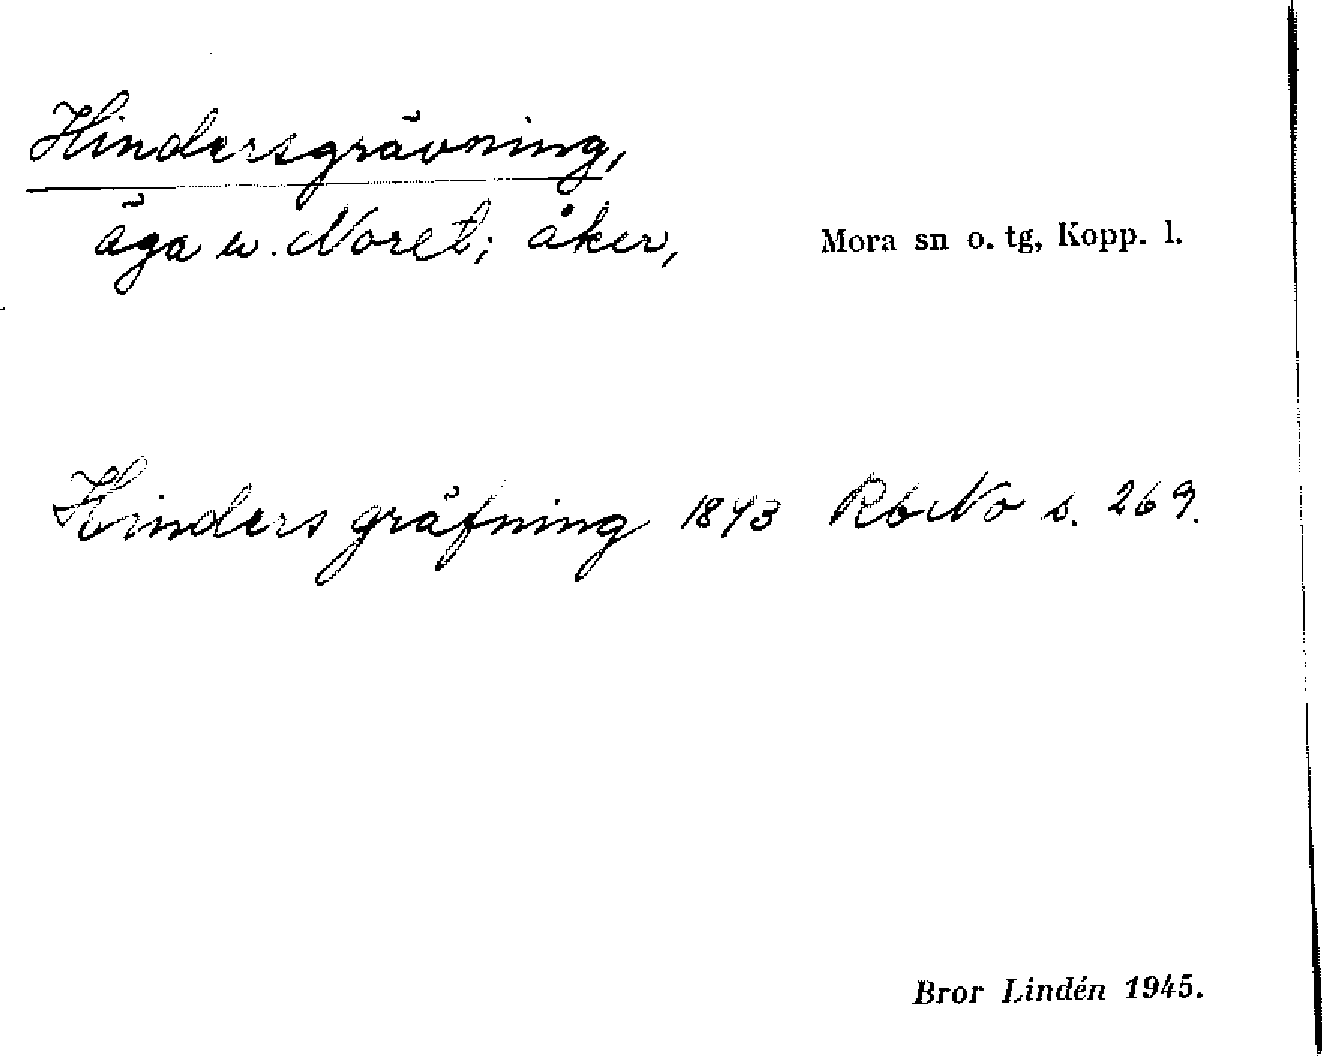 Hindersgrävning,
äga u. Noret; åker,
Mora sn o. tg, Kopp. l.
Hinders gräfning 1843 RbNo s. 269.
Bror Lindén 1945.